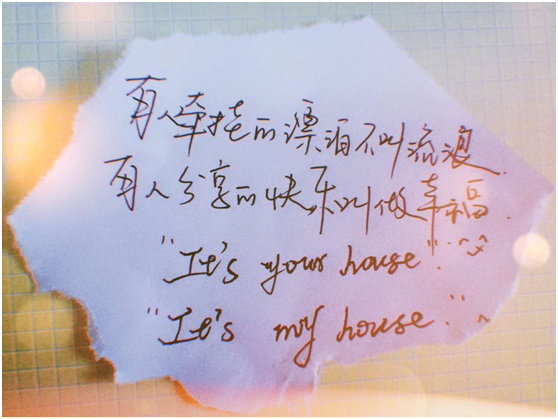 有人牵挂的漂泊不叫流浪
有人分享的快乐叫做幸福.
"It's your house". ^-^
"It's my house." ^